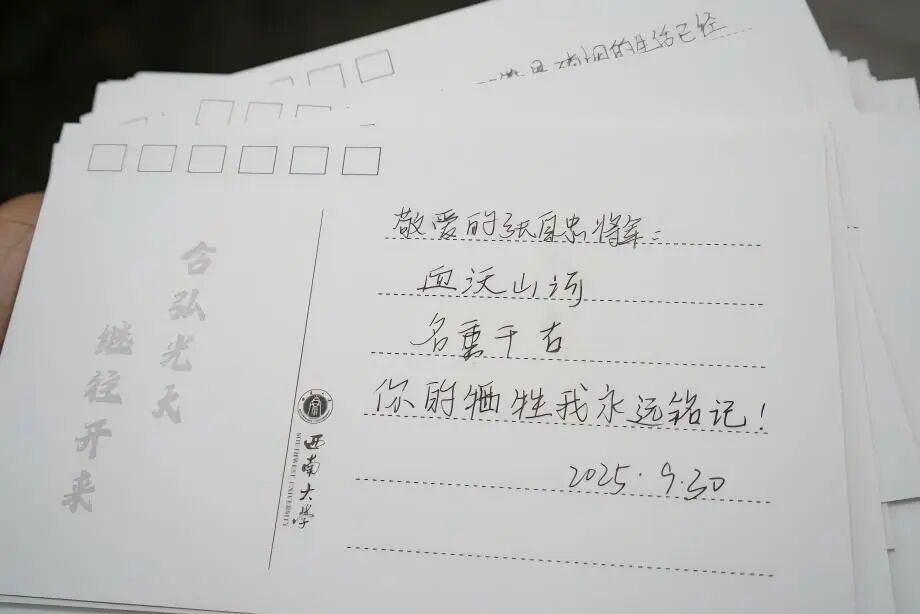 的生活已经
敬爱的张自忠将军：
血沃山河
名重千古
你的牺牲我永远铭记！
2025.9.30
含弘光大
继往开来
西南大学
SOUTHWEST UNIVERSITY